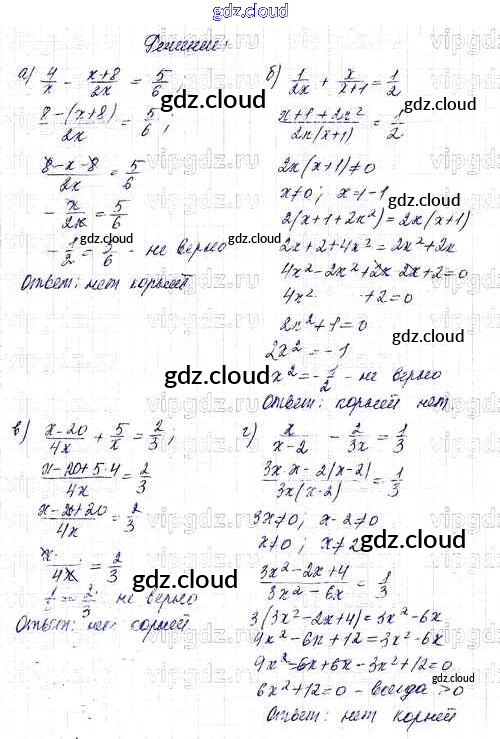 gdz.cloud
Решение:
а) 4/x - (x+8)/2x = 5/6;
(8-(x+8))/2x = 5/6;
(8-x-8)/2x = 5/6
- x/2x = 5/6
- 1/2 = 5/6 - не верно
Ответ: нет корней
б) 1/2x + x/(x+1) = 1/2
(x+1+2x²)/(2x(x+1)) = 1/2
2x(x+1)≠0
x≠0; x=1-1
2(x+1+2x²)=2x(x+1)
2x+2+4x²=2x²+2x
4x²-2x²+2x 2x+2=0
4x² +2=0
2x²+1=0
2x²=-1
x²=-1/2 - не верно
Ответ: корней нет
в) (x-20)/4x + 5/x = 2/3;
(x-20+5·4)/4x = 2/3
(x-20+20)/4x = 2/3
x/4x = 2/3
= 2/3 не верно
Ответ: нет корней
г) x/(x-2) - 2/3x = 1/3
(3x·x-2(x-2))/(3x(x-2)) = 1/3
3x≠0; x-2≠0
x≠0; x≠2
(3x²-2x+4)/(3x²-6x) = 1/3
3(3x²-2x+4)=3x²-6x
9x²-6x+12=3x²-6x
9x²-6x+6x-3x²+12=0
6x²+12=0 - всегда >0
Ответ: нет корней
gdz.cloud
gdz.cloud
gdz.cloud
gdz.cloud
gdz.cloud
gdz.cloud
gdz.cloud